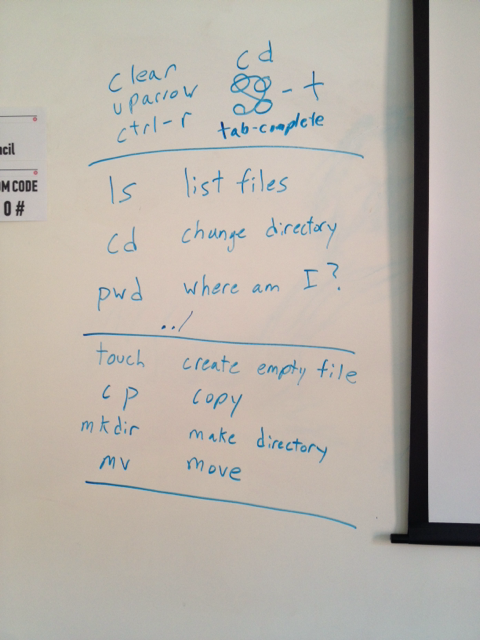 clear
uparrow
ctrl-r
cd
⌘ - t
tab-complete
ls list files
cd change directory
pwd where am I?
../
touch create empty file
cp copy
mkdir make directory
mv move
cil
OM CODE
0 #